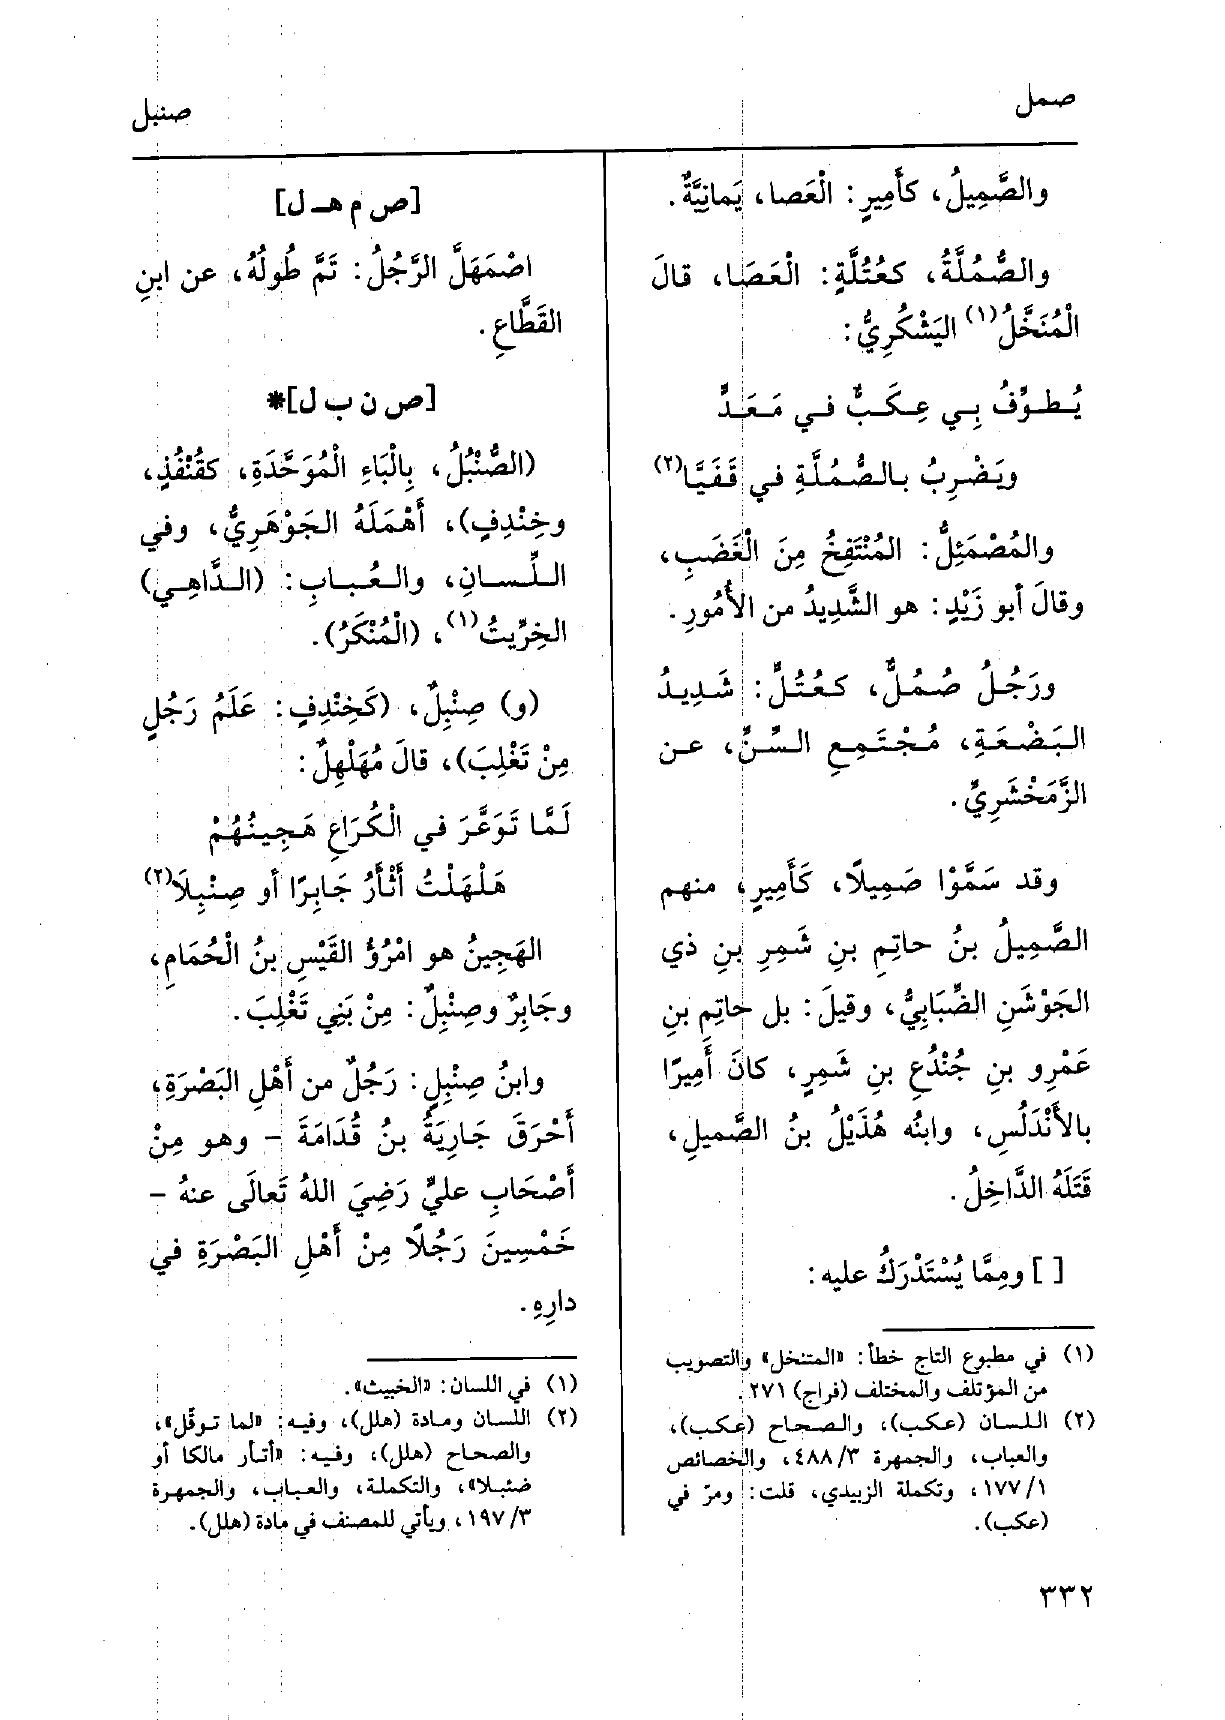 صمل
صنبل
والصَّمِيلُ، كأَمِيرٍ: الْعَصا، يَمانِيَّةٌ.
والصُّمُلَّةُ، كعُتُلَّةٍ: الْعَصَا، قالَ
الْمُنَخَّلُ(١) اليَشْكُرِيُّ:
يُطوِّفُ بِي عِكَبٌّ في مَعَدٍّ
ويَضْرِبُ بالصُّمُلَّةِ في قَفَيَّا(٢)
والمُصْمَئِلُّ: المُنْتَفِخُ مِنَ الْغَضَبِ،
وقالَ أبو زَيْدٍ: هو الشَّدِيدُ من الأُمُورِ.
ورَجُلٌ صُمُلٌّ، كعُتُلٍّ: شَدِيدُ
البَضْعَةِ، مُجْتَمِع السِّنِّ، عن
الزَّمَخْشَرِيِّ.
وقد سَمَّوْا صَمِيلًا، كَأَمِيرٍ، منهم
الصَّمِيلُ بنُ حاتِمِ بنِ شَمِرِ بنِ ذي
الجَوْشَنِ الضِّبَابِيُّ، وقيلَ: بل حاتِمِ بنِ
عَمْرِو بنِ جُنْدُعِ بنِ شَمِرٍ، كانَ أَمِيرًا
بالأَنْدَلُسِ، وابنُه هُذَيْلُ بنُ الصَّميلِ،
قَتَلَهُ الدَّاخِلُ.
[ ] ومِمَّا يُسْتَدْرَكُ عليه:
(١) في مطبوع التاج خطأ: «المتنخل» والتصويب
من المؤتلف والمختلف (فراج) ٢٧١.
(٢) اللسان (عكب)، والصحاح (عكب)،
والعباب، والجمهرة ٤٨٨/٣، والخصائص
١٧٧/١، وتكملة الزبيدي، قلت: ومرّ في
(عكب).
٣٣٢
[ص م هـ ل]
اصْمَهَلَّ الرَّجُلُ: تَمَّ طُولُهُ، عن ابنِ
القَطَّاعِ.
[ص ن ب ل]*
(الصُّنْبُلُ، بِالْبَاءِ الْمُوَحَّدَةِ، كقُنْفُذٍ،
وخِنْدِفٍ)، أَهْمَلَهُ الجَوْهَرِيُّ، وفي
اللِّسانِ، والعُبابِ: (الدَّاهِي)
الخِرِّيتُ(١)، (الْمُنْكَرُ).
(و) صِنْبِلٌ، (كَخِنْدِفٍ: عَلَمُ رَجُلٍ
مِنْ تَغْلِبَ)، قالَ مُهَلْهِلٌ:
لَمَّا تَوَعَّرَ في الْكُرَاعِ هَجِينُهُمْ
هَلْهَلْتُ أَثْأَرُ جَابِرًا أو صِنْبِلَا(٢)
الهَجِينُ هو امْرُؤُ القَيْسِ بنُ الْحُمَامِ،
وجَابِرٌ وصِنْبِلٌ: مِنْ بَنِي تَغْلِبَ.
وابنُ صِنْبِلٍ: رَجُلٌ من أَهْلِ البَصْرَةِ،
أَحْرَقَ جَارِيَةُ بنُ قُدَامَةَ - وهو مِنْ
أَصْحَابِ عليٍّ رَضِيَ اللهُ تَعالَى عنهُ -
خَمْسِينَ رَجُلًا مِنْ أَهْلِ البَصْرَةِ في
دارِهِ.
(١) في اللسان: «الخبيث».
(٢) اللسان ومادة (هلل)، وفيه: «لما توقّل»،
والصحاح (هلل)، وفيه: «أثأر مالكا أو
ضئبلا»، والتكملة، والعباب، والجمهرة
١٩٧/٣، ويأتي للمصنف في مادة (هلل).